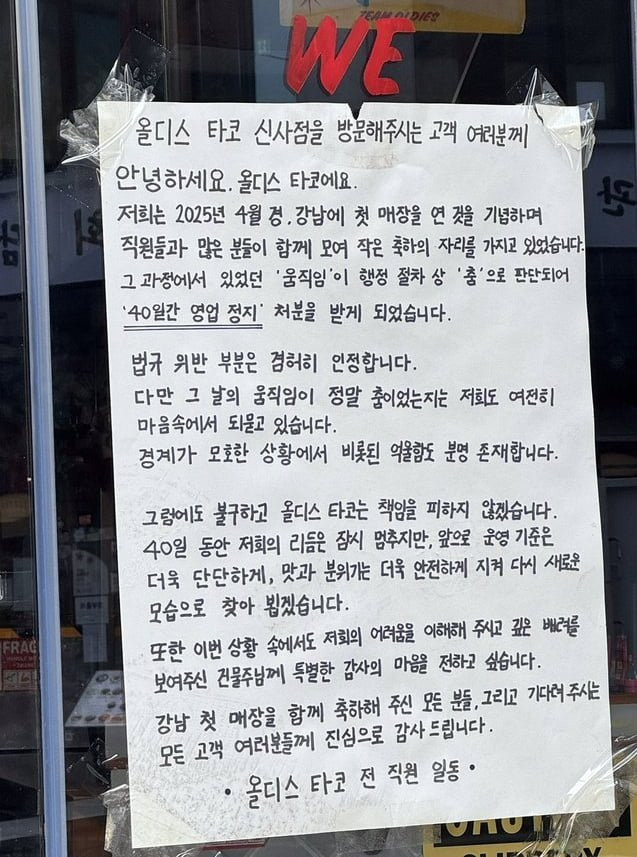 TEAM OLDIES
WE
올디스 타코 신사점을 방문해주시는 고객 여러분께
안녕하세요. 올디스 타코에요.
저희는 2025년 4월 경, 강남에 첫 매장을 연 것을 기념하며
직원들과 많은 분들이 함께 모여 작은 축하의 자리를 가지고 있었습니다.
그 과정에서 있었던 '움직임'이 행정 절차 상 '춤'으로 판단되어
'40일간 영업 정지' 처분을 받게 되었습니다.
법규 위반 부분은 겸허히 인정합니다.
다만 그 날의 움직임이 정말 춤이었는지는 저희도 여전히
마음속에서 되묻고 있습니다.
경계가 모호한 상황에서 비롯된 억울함도 분명 존재합니다.
그럼에도 불구하고 올디스 타코는 책임을 피하지 않겠습니다.
40일 동안 저희의 리듬은 잠시 멈추지만, 앞으로 운영 기준은
더욱 단단하게, 맛과 분위기는 더욱 안전하게 지켜 다시 새로운
모습으로 찾아 뵙겠습니다.
또한 이번 상황 속에서도 저희의 어려움을 이해해 주시고 깊은 배려를
보여주신 건물주님께 특별한 감사의 마음을 전하고 싶습니다.
강남 첫 매장을 함께 축하해 주신 모든 분들, 그리고 기다려 주시는
모든 고객 여러분들께 진심으로 감사 드립니다.
• 올디스 타코 전 직원 일동 •
FRAG